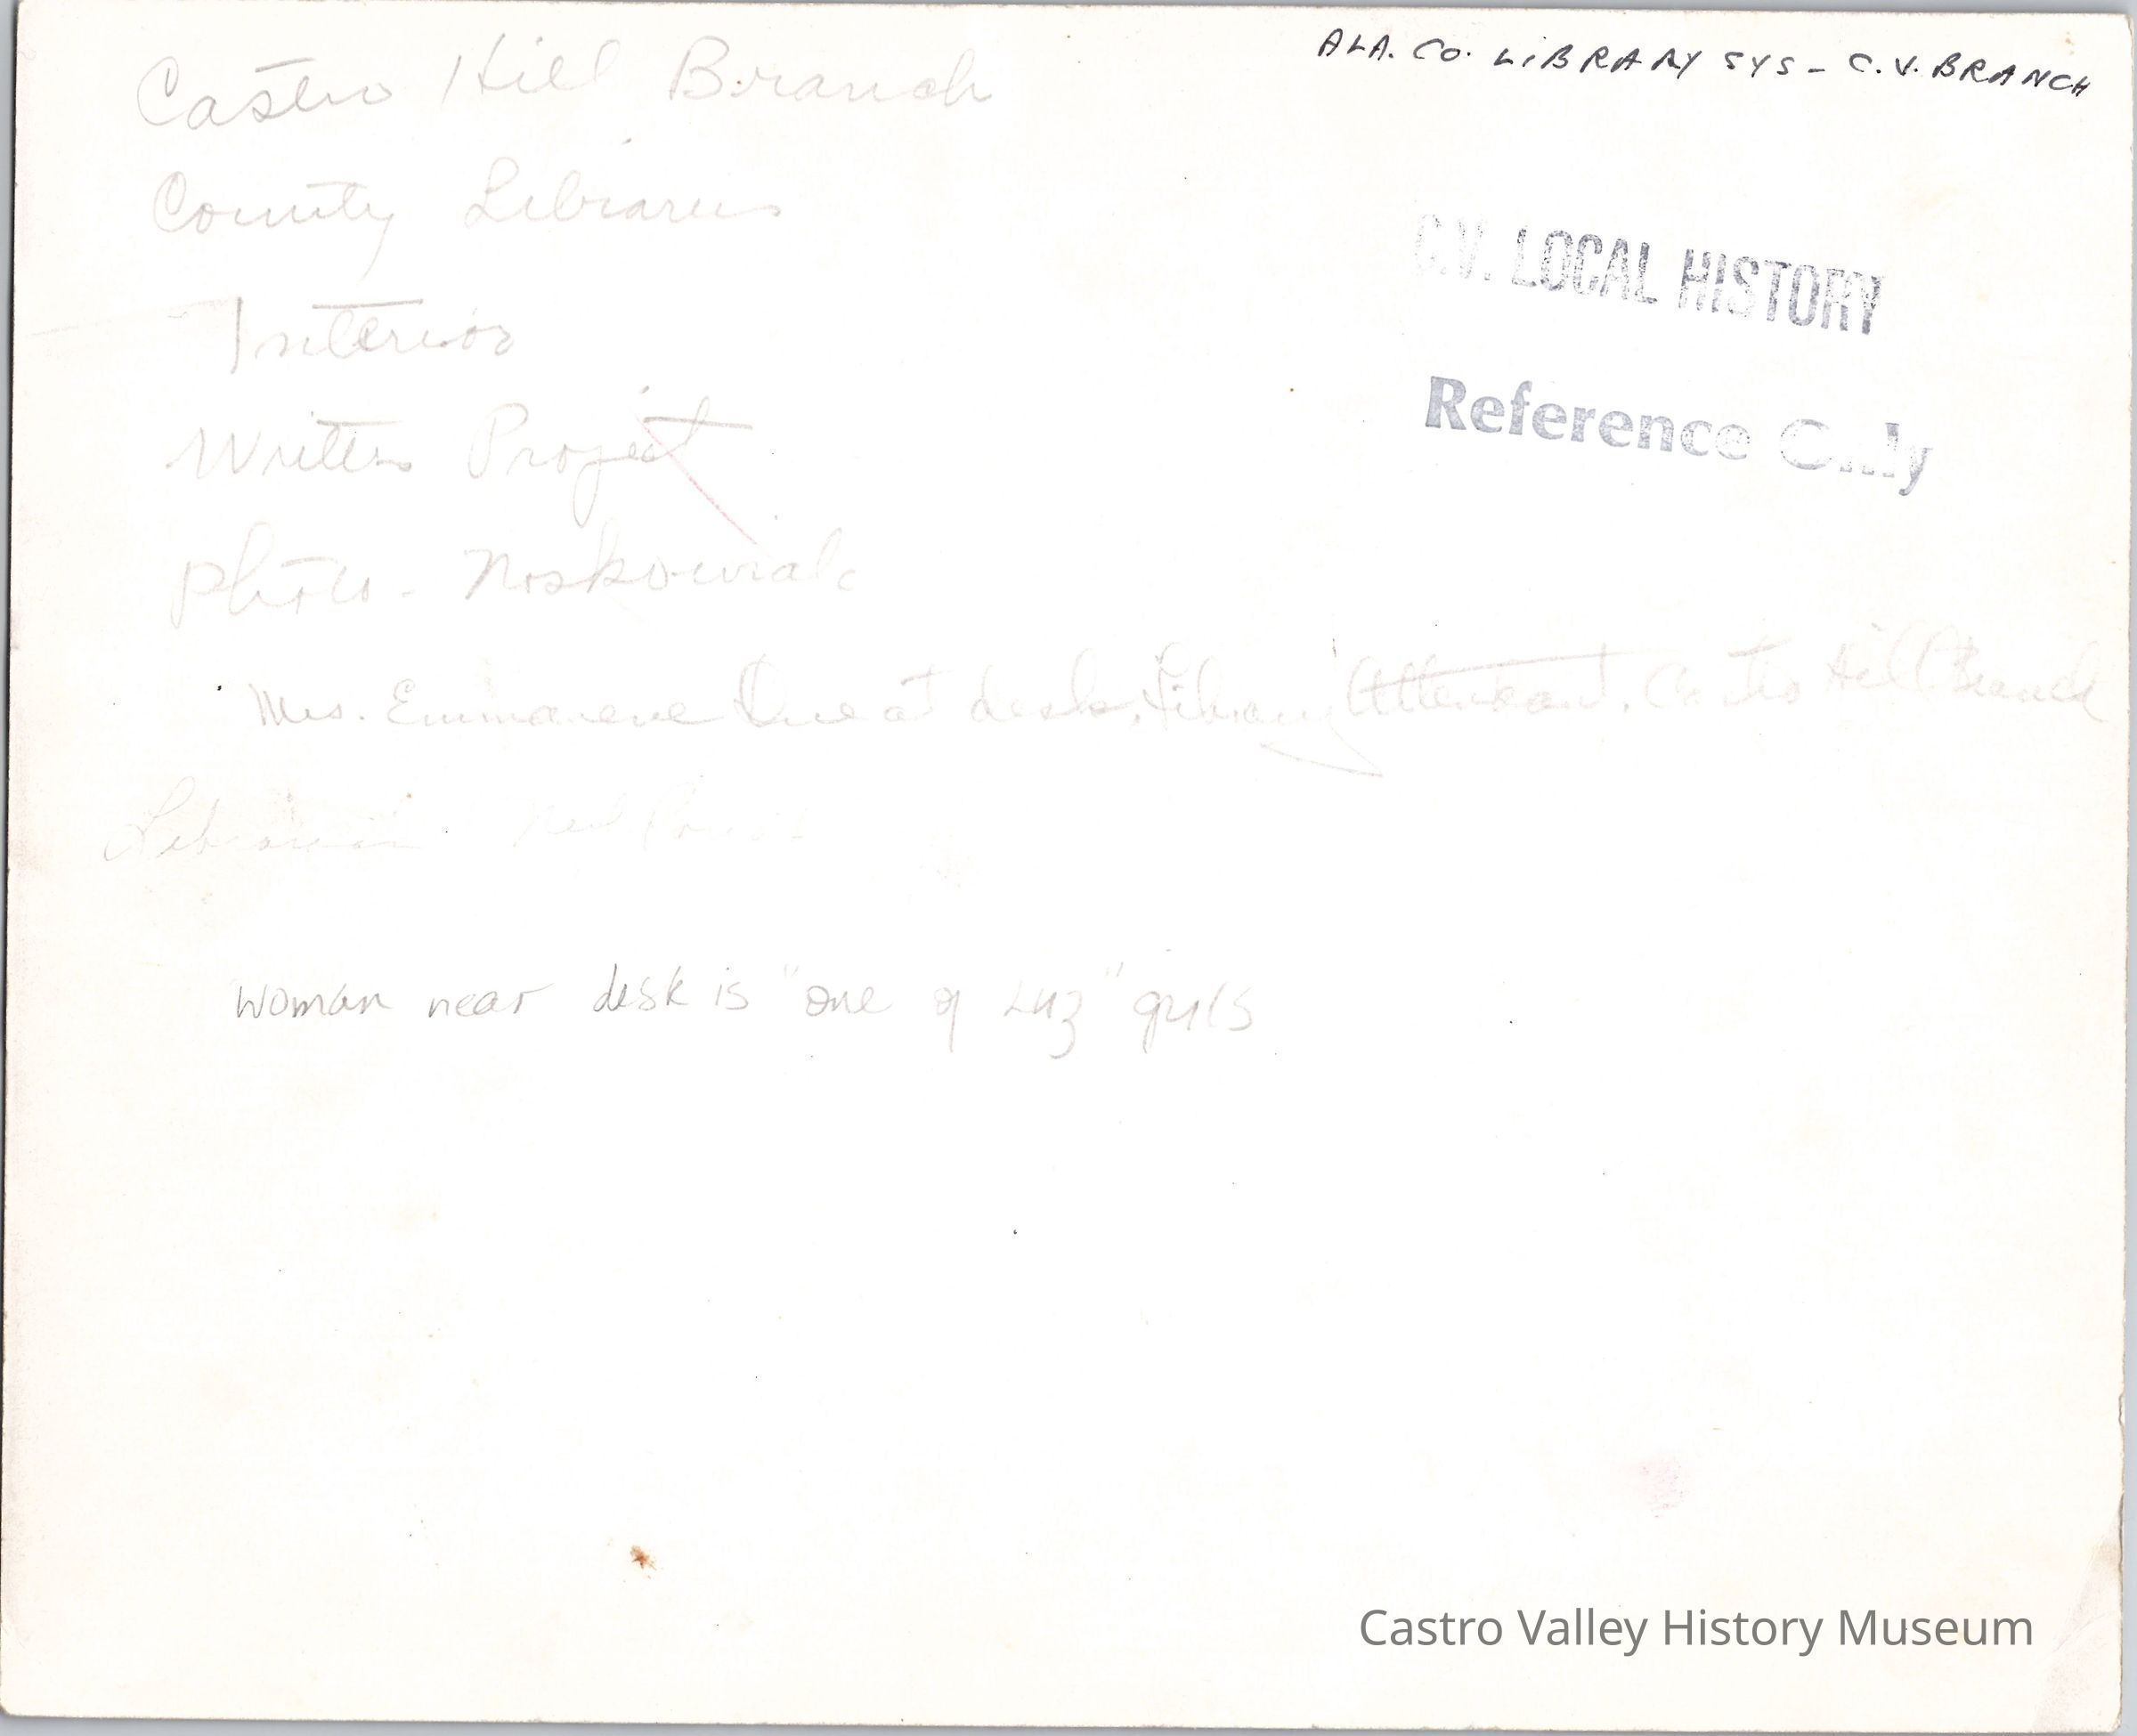 ALA. CO. LIBRARY SYS - C.V. BRANCH
Castro Hill Branch
County Libraries
C.V. LOCAL HISTORY
Interior
Reference Only
Project
Photo -
Mrs. at desk, Library Attendant, Castro Hill Branch
woman near desk is "one of Luz" girls
Castro Valley History Museum